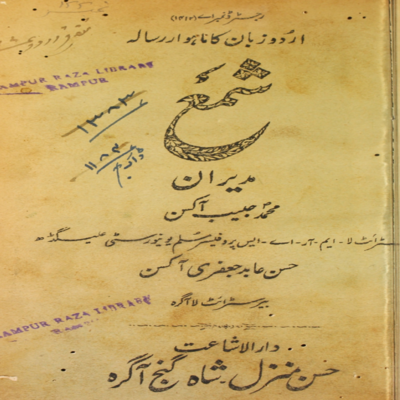 رجسٹرڈ نمبر اے (۱۲۱۵)
اردو زبان کا ماہوار رسالہ
RAMPUR RAZA LIBRARY
RAMPUR
شمع
۱۳۸۳
۱۱۸۳
مدیران
محمد حبیب آکسن
بیرسٹراٹ لا - ایم - آر - اے - ایس پروفیسر مسلم یونیورسٹی علیگڈھ
حسن عابد جعفری آکسن
بیرسٹراٹ لا آگرہ
RAMPUR RAZA LIBRARY
دارالاشاعت
حسن منزل، شاہ گنج آگرہ